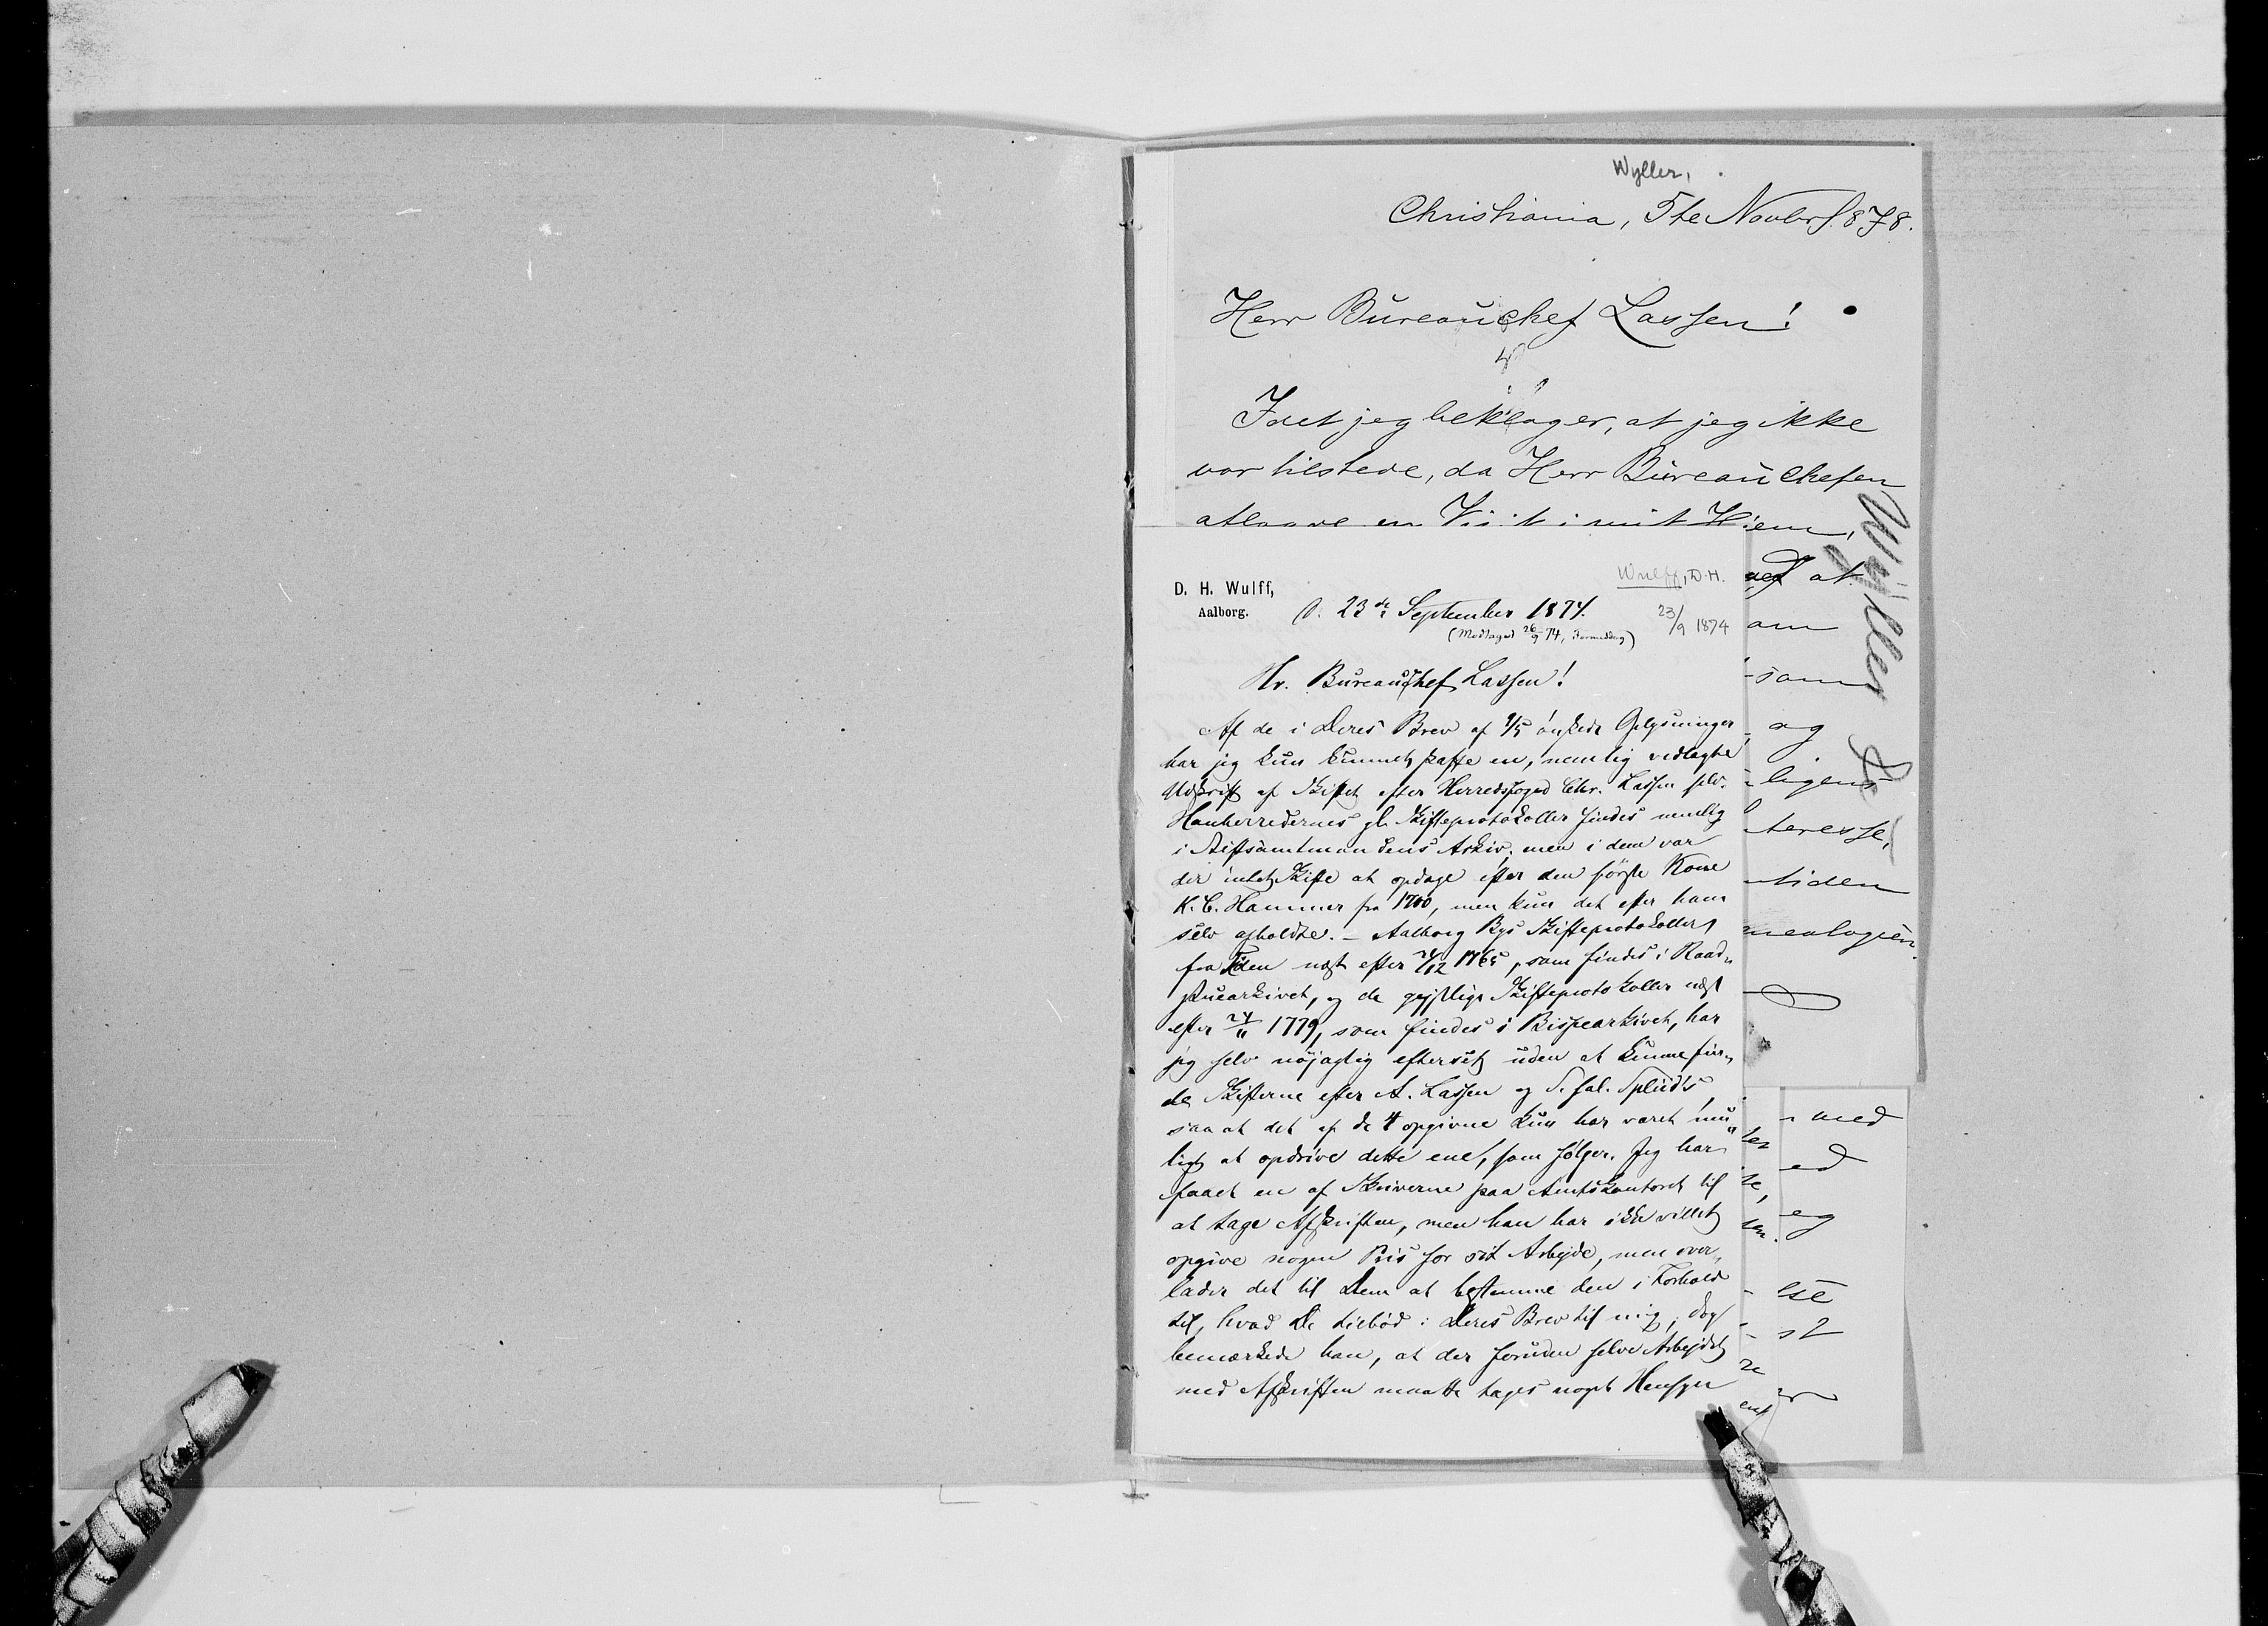 Wyller,
Christiania, 5te Novbr 1878.
Herr Bureauchef Lassen!
Idet jeg beklager, at jeg ikke
var tilstede, da Herr Bureauchefen
aflagde en Visit i mit Hjem,
Wyller
D. H. Wulff,
Aalborg.
Wulff, D.H.
23/9 1874
D. 23de September 1874.
(Modtaget 26/9 74, Formiddag)
Hr. Bureauchef Lassen!
Af de i Deres Brev af 9/5 önskede Oplysninger
har jeg kun kunnet skaffe en, nemlig vedlagte
Udskrift af Skiftet efter Herredsfoged Chr. Lassen selv.
Hanherredernes gl. Skifteprotokoller findes nemlig
i Stiftsamtmandens Arkiv, men i dem var
der intet Skifte at opdage efter den förste Kone
K. C. Hammer fra 1760, men kun det efter ham
selv afholdte. – Aalborg Bys Skifteprotokoller
fra Tiden næst efter 24/12 1765, som findes i Raad-
stuearkivet, og de gejstlige Skifteprotokoller næst
efter 24/11 1779, som findes i Bispearkivet, har
jeg selv nöjagtig efterset uden at kunne fin-
de Skifterne efter A. Lassen og S. sal. Spliids,
saa at det af de 4 opgivne kun har været mu-
ligt at opdrive dette ene, som fölger. Jeg har
faaet en af Skriverne paa Amtskontoret til
at tage Afskriften, men han har ikke villet
opgive nogen Pris for sit Arbejde, men over-
lader det til Dem at bestemme den i Forhold
til, hvad De tilböd i Deres Brev til mig; dog
bemærkede han, at der foruden selve Arbejdet
med Afskriften maatte tages noget Hensyn
at
om
som
og
ligens
teresse,
tiden
nealogien
med
ed
eg
lse
st
er